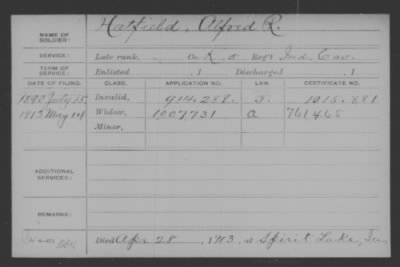 NAME OF SOLDIER: Hatfield, Alfred R.
SERVICE: Late rank, Co. K, 5 Reg't Ind. Cav.
TERM OF SERVICE: Enlisted , 1 Discharged , 1
DATE OF FILING. CLASS. APPLICATION NO. LAW. CERTIFICATE NO.
1890 July 15 Invalid, 914.288 J. 1015.881
1913 May 14 Widow, 1007731 a 761465
Minor,
ADDITIONAL SERVICES:
REMARKS:
Died Apr 28, 1913, at Spirit Lake, Ia.